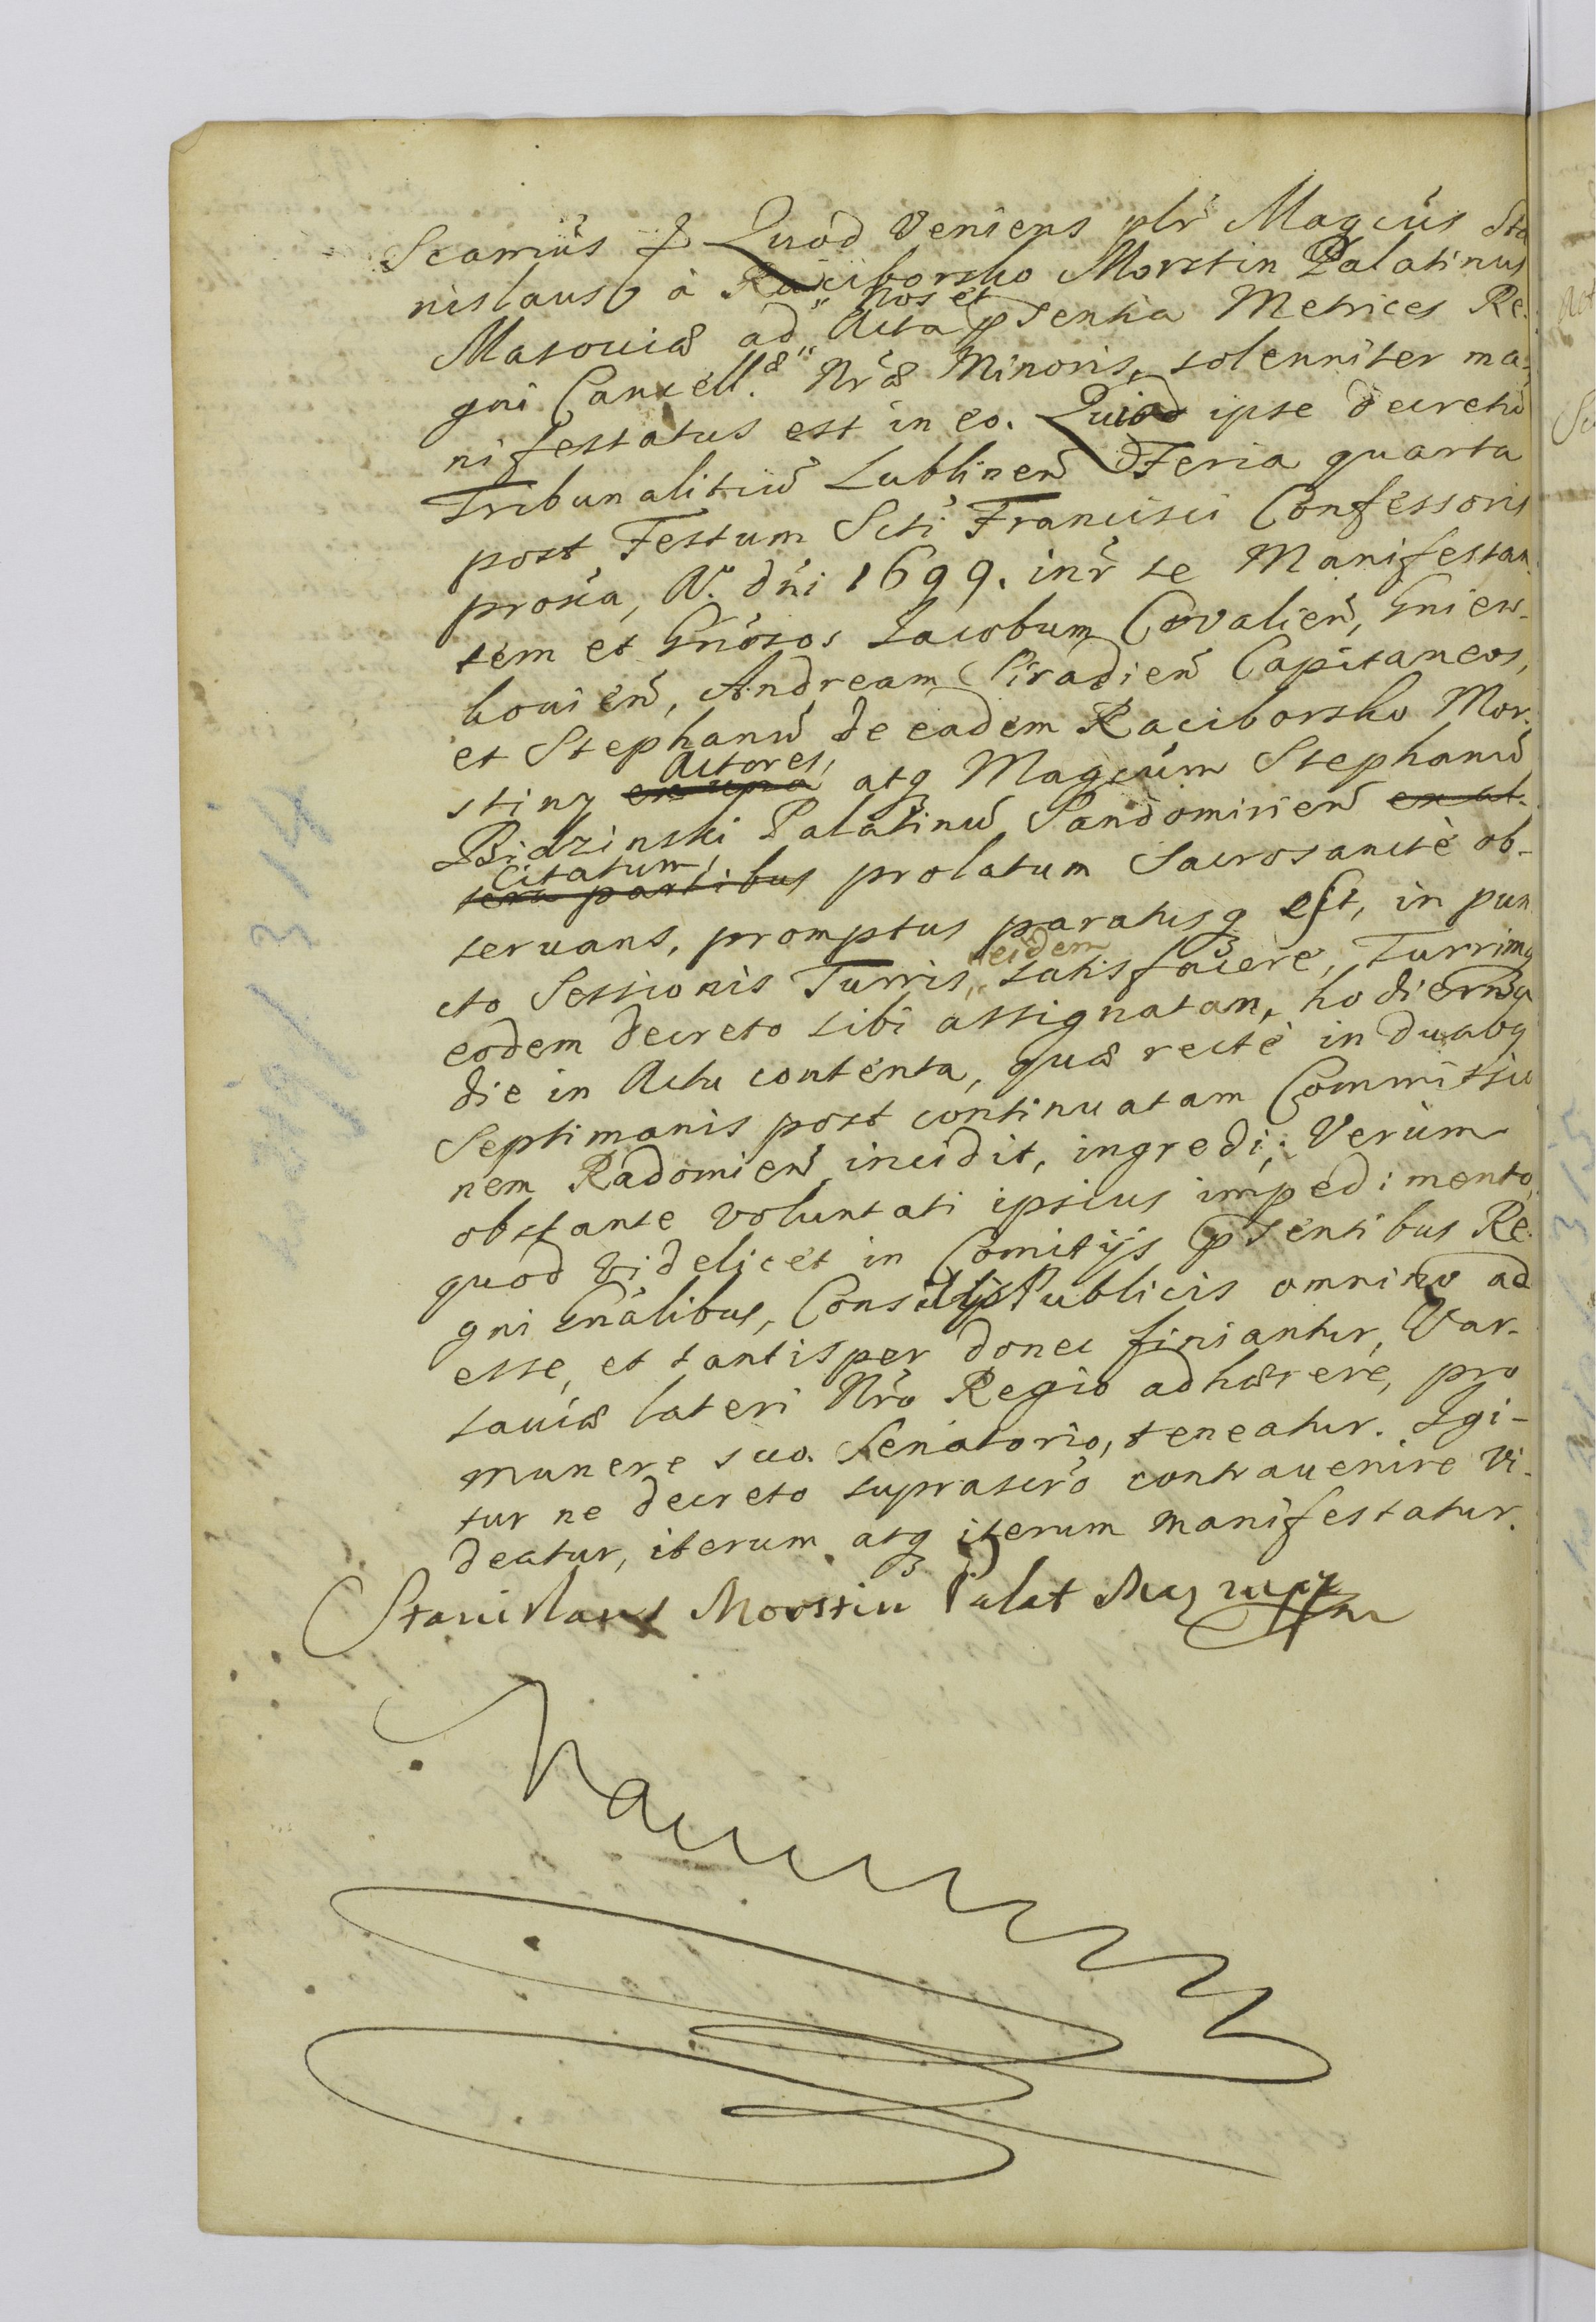 Scamus & Quod veniens plr Magcus Sta
nislaus à Raciborsko Morstin Palatinus
Masouiæ ad nos et Acta p̃sentia Metrices Re.
gni Cancell.æ Nræ Minoris, solenniter ma-
nifestatus est in eo. Quod ipse decretũ
Tribunalitiũ Lublineñ Feria quarta
post Festum Scti Francisci Confessoris
proxia, Ao. dni 1699. inr se Manifestan-
tem et Gnosos Jacobum Covalieñ, Gniew-
kouieñ, Andream Siradieñ Capitaneos,
et Stephanũ de eadem Raciborsko Mor-
stiny ex una Actores, atq Magcum Stephanũ
Bidzinski Palatinũ Sandomirieñ ex al-
tera partibus Citatum, prolatum Sacrosanctè ob-
seruans, promptus paratusq est, in pun
cto Sessionis Turris, eidem satisfacere, Turrimq
eodem decreto sibi assignatam, hodierna
die in Actu contenta, quæ rectè in duabq
Septimanis post continuatam Commissio
nem Radomieñ incidit, ingredi, Verùm
obstante voluntati ipsius impedimento,
quod videlicet in Comitijs p̃sentibus Re-
gni Gnalibus, Consilijs Publicis omnino ad
esse, et tantisper donec finiantur, Var-
sauiæ lateri Nro Regio adhærere, pro
munere suo Senatorio, teneatur. Igi-
tur ne decreto suprascro contrauenire vi-
deatur, iterum atq iterum manifestatur.
Stanislaus Morstin Palat Maz